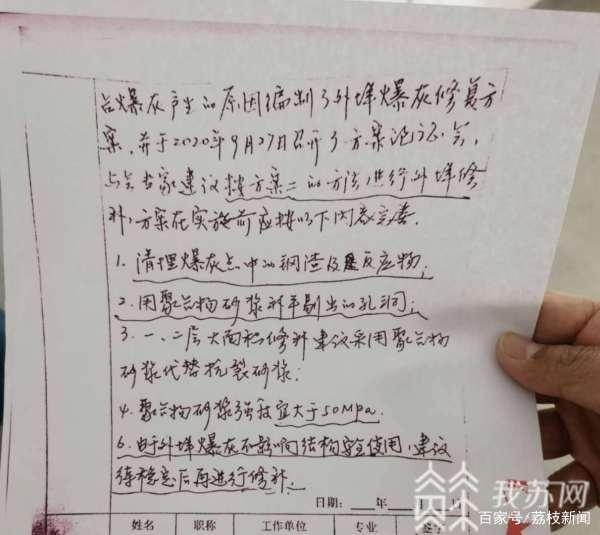 合爆灰产生的原因编制了外墙爆灰修复方
案,并于2020年9月27日召开了方案论证会,
与会专家建议按方案二的方法进行外墙修
补,方案在实施前应按以下内容完善.
1. 清理爆灰点中的钢渣及反应物;
2. 用聚合物砂浆补平剔出的孔洞;
3. 一、二层大面积修补建议采用聚合物
砂浆代替抗裂砂浆;
4. 聚合物砂浆强度宜大于50Mpa.
6. 由于外墙爆灰不影响结构安全使用,建议
待稳定后再进行修补.
日期: 年 月
姓名 职称 工作单位 专业 签字
我苏网
百家号/荔枝新闻